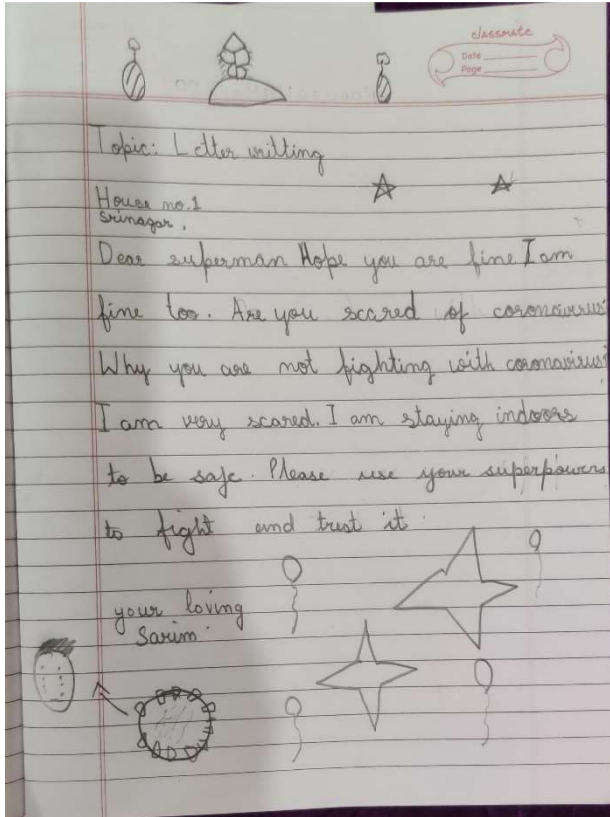 classmate
Date
Page
Topic: Letter writting
House no.1
Srinagar.
Dear superman Hope you are fine I am
fine too. Are you scared of coronavirus
Why you are not fighting with coronavirus?
I am very scared. I am staying indoors
to be safe. Please use your superpowers
to fight and trust it.
your loving
Sarim.